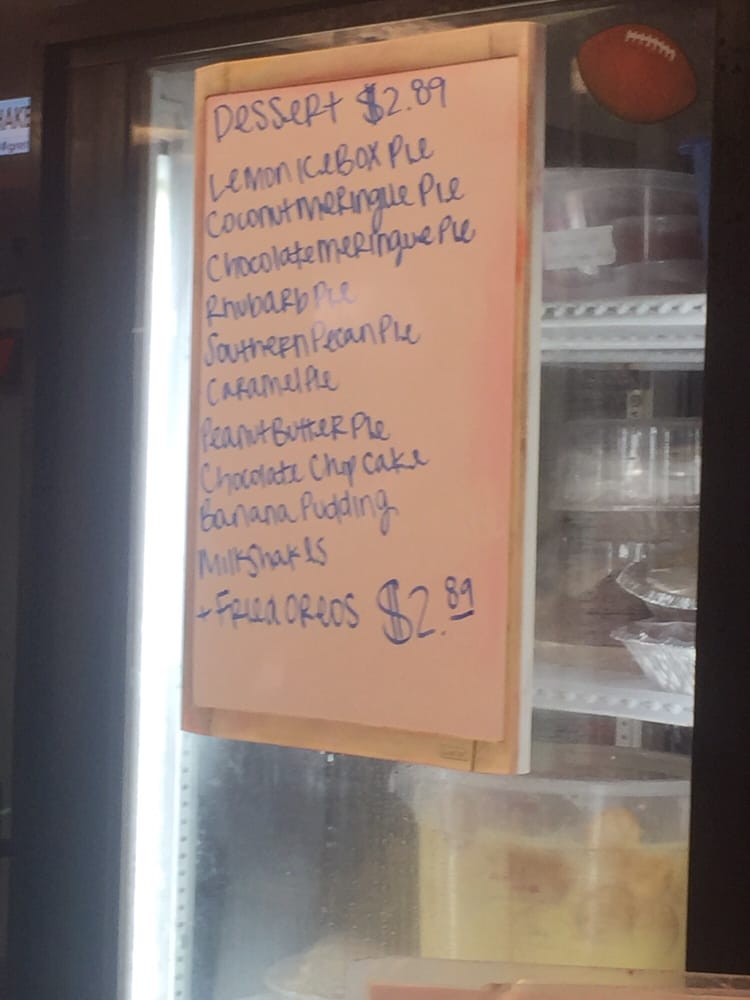 Dessert $2.89
Lemon Ice Box Pie
Coconut Meringue Pie
Chocolate Meringue Pie
Rhubarb Pie
Southern Pecan Pie
Caramel Pie
Peanut Butter Pie
Chocolate Chip Cake
Banana Pudding
Milkshakes
+ Fried Oreos $2.89